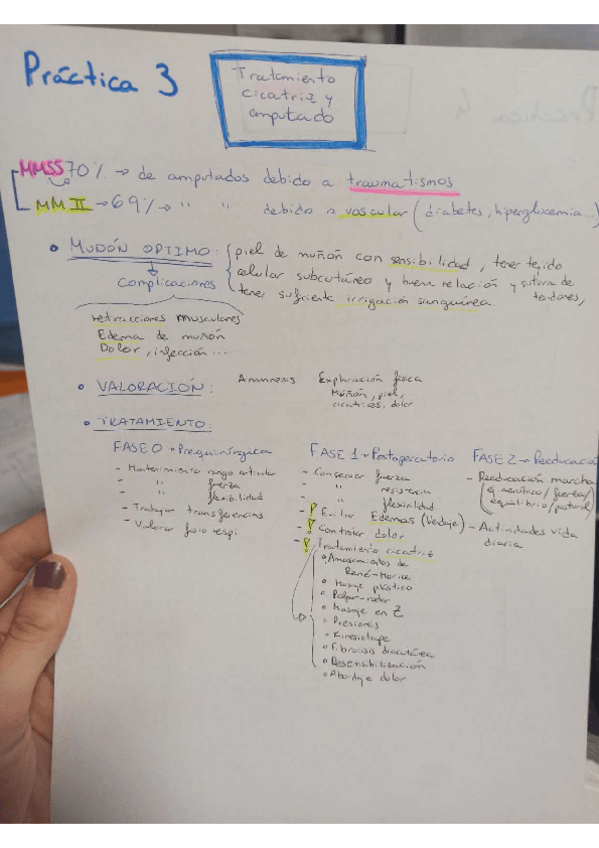 Práctica 3
Tratamiento
cicatriz y
amputado
MMSS 70% → de amputados debido a traumatismos
MM II → 69% → " " debido a vascular (diabetes, hiperglucemia...)
• MUÑÓN OPTIMO: piel de muñón con sensibilidad, tener tejido
celular subcutáneo y buena relación y sutura de tendones,
tener suficiente irrigación sanguínea.
complicaciones
retracciones musculares
Edema de muñón
Dolor, infección...
• VALORACIÓN: Anmnesis Exploración física
Muñón, piel,
cicatrices, dolor
• TRATAMIENTO:
FASE 0 → Prequirúrgica
- Mantenimiento rango articular
- " fuerza
- " flexibilidad
- Trabajar transferencias
- Valorar fisio respi
FASE 1 → Postoperatorio
- Conservar fuerza
- " resistencia
- " flexibilidad
- ! Evitar Edemas (Vendaje)
- ! Controlar dolor
- ! Tratamiento cicatriz
• Amasamientos de
• Masaje plástico
• Palpar-rodar
• Masaje en Z
• Presiones
• Kinesiotape
• Fibrolisis diacutánea
• Desensibilización
• Abordaje dolor
FASE 2 → Reeducación
- Reeducación marcha
equilibrio/postural)
- Actividades vida
diaria